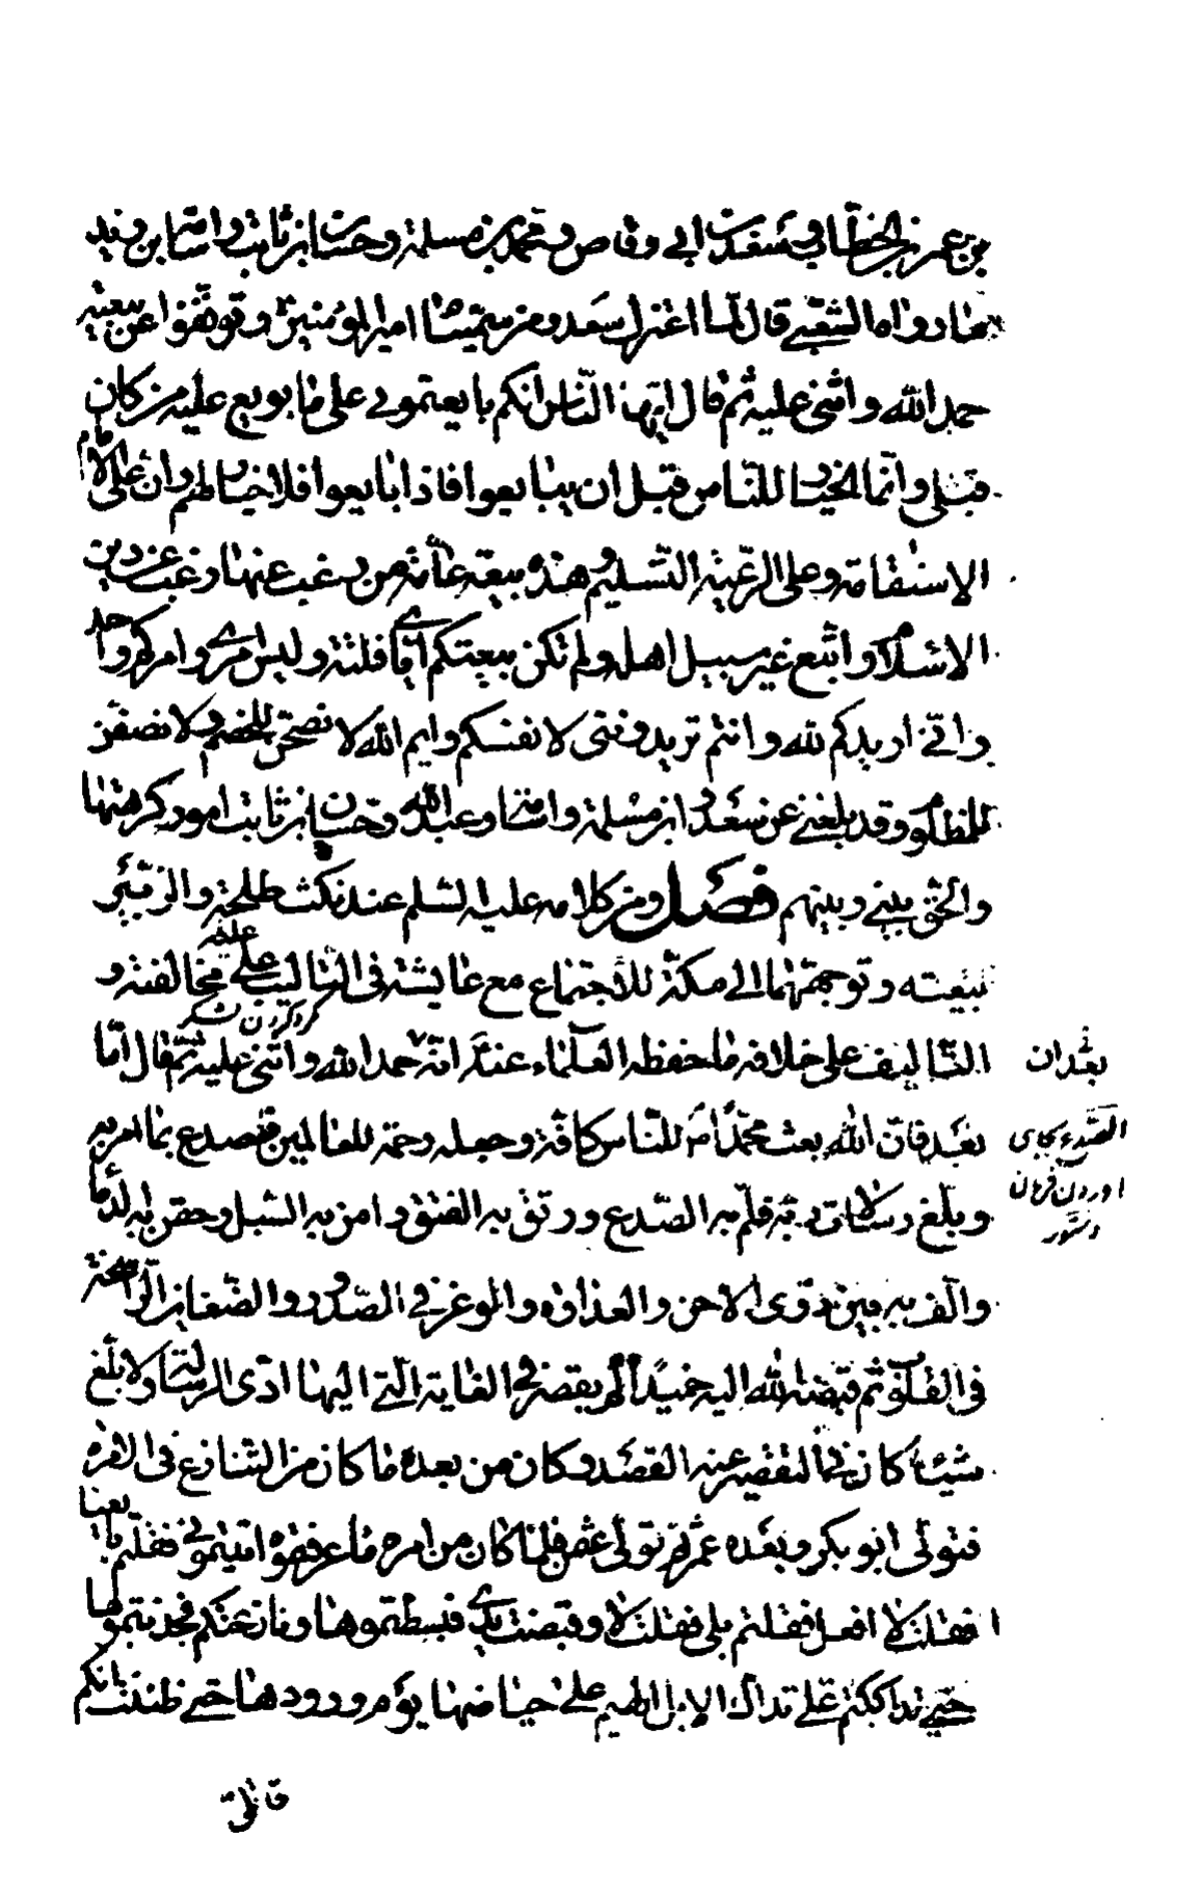 بن عمر بن الخطاب وسعد بن ابي وقاص ومحمد بن مسلمة وحسان بن ثابت واسامة بن زيد
ما رواه الشعبي قال لما اعتزل سعد ومن سميناه امير المؤمنين وتوقفوا عن بيعته
حمد الله واثنى عليه ثم قال ايها الناس انكم بايعتموني على ما بويع عليه من كان
قبلي وانما الخيار للناس قبل ان يبايعوا فاذا بايعوا فلا خيار لهم وان على الامام
الاستقامة وعلى الرعية التسليم وهذه بيعة عامة من رغب عنها رغب عن دين
الاسلام واتبع غير سبيل اهله ولم تكن بيعتكم اياي فلتة وليس امري وامركم واحد
واني اريدكم لله وانتم تريدونني لانفسكم وايم الله لا نصحن للخصم ولا نصفن
للمظلوم وقد بلغني عن سعد وابن مسلمة واسامة وعبد الله وحسان بن ثابت امور كرهتها
والحق بيني وبينهم فصل ومن كلامه عليه السلم عند نكث طلحة والزبير
بيعته وتوجههما الى مكة للاجتماع مع عايشة في التاليب عليه مخالفته و
التاليف على خلافه ما حفظه العلماء عنه انه حمد الله واثنى عليه ثم قال اما
بعد فان الله بعث محمدا ص للناس كافة وجعله رحمة للعالمين فصدع بما امر به
وبلغ رسالات ربه فلم به الصدع ورتق به الفتق وامن به السبل وحقن به الدماء
والف به بين ذوى الاحن والعداوة والوغر في الصدور والضغاين الراسخة
في القلوب ثم قبضه الله اليه حميدا لم يقصر في الغاية التي اليها ادى الرسالة ولا بلغ
شيئا كان في التقصير عنه القصد وكان من بعده ما كان من التنازع في الامرة
فتولى ابو بكر وبعده عمر ثم تولى عثمن فلما كان من امره ما عرفتموه اتيتموني فقلتم بايعنا
فقلت لا افعل فقلتم بلى فقلت لا وقبضت يدي فبسطتموها ونازعتكم فجذبتموها
حتى تداككتم علي تداك الابل الهيم على حياضها يوم ورودها حتى ظننت انكم
قاتلي